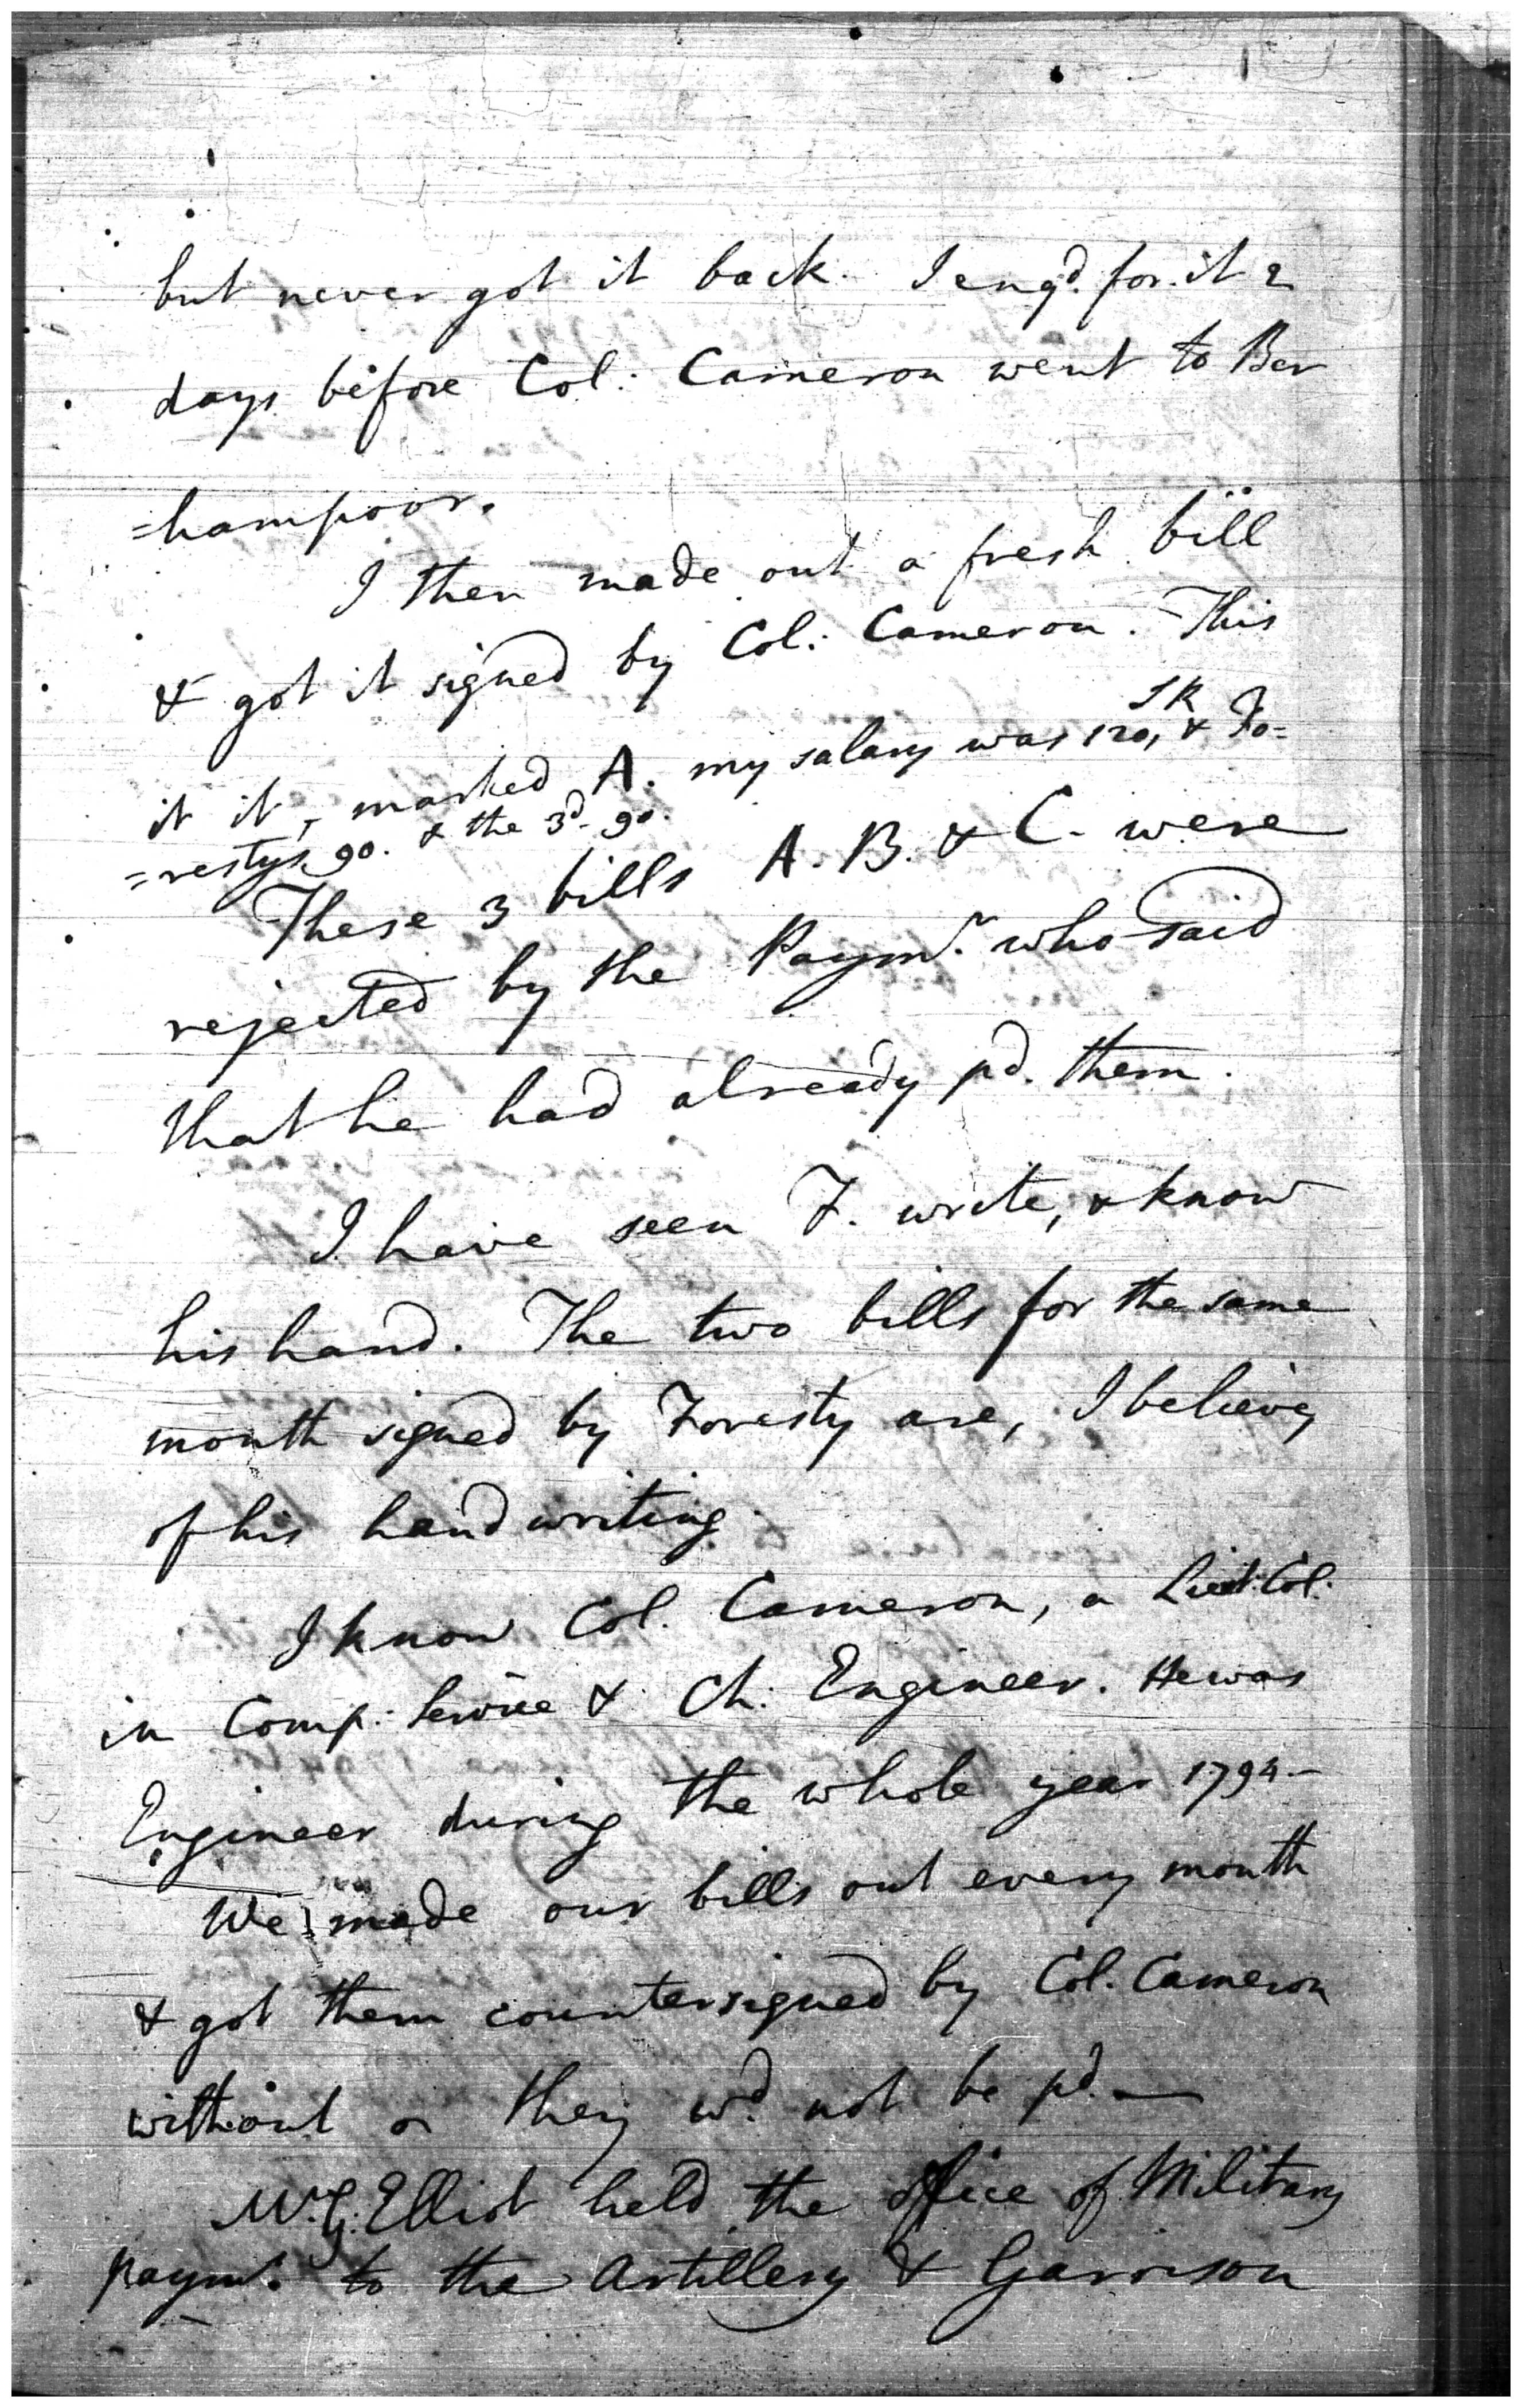 but never got it back. I enqd. for it 2
days before Col: Cameron went to Ber
=hampoor.
I then made out a fresh bill
& got it signed by Col: Cameron. This
it it, marked A. my salary was 120, SR & Fo=
=restys 90. & the 3d. 90.
These 3 bills A. B. & C. were
rejected by the Paymr. who said
that he had already pd. them.
I have seen F. write, & know
his hand. The two bills for the same
month signed by Foresty are, I believe,
of his hand writing.
I know Col. Cameron, a Lieut. Col.
in Comp: Service & Ch: Engineer. He was
Engineer during the whole year 1794.-
We made our bills out every month
& got them countersigned by Col. Cameron
without they wd. not be pd. —
Mr. G. Elliot held the office of Military
paymr. to the Artillery & Garrison